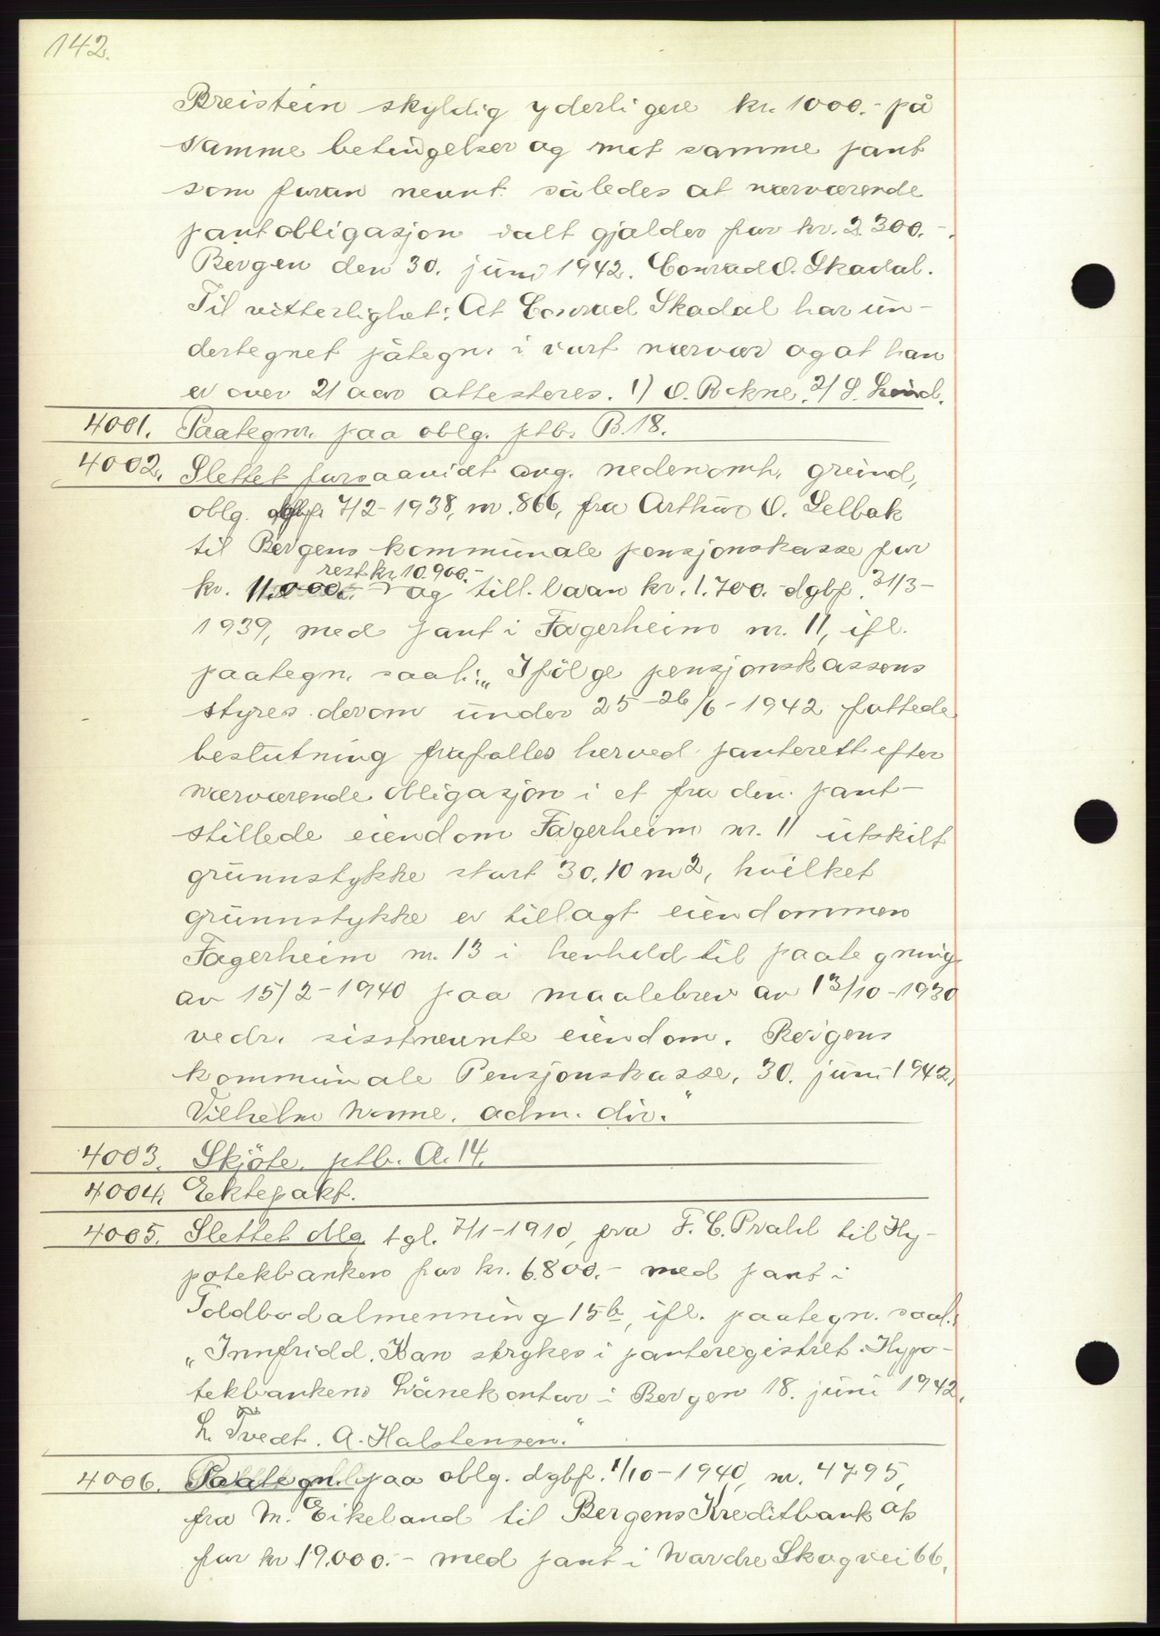 142.
Breistein skyldig yderligere kr. 1000.- på
samme betingelser og mot samme pant
som foran nevnt således at nærværende
pantobligasjon ialt gjelder for kr. 2300.-.
Bergen den 30. juni 1942. Conrad O. Skadal.
Til vitterlighet: At Conrad Skadal har un-
dertegnet påtegn. i vart nærvær og at han
er over 21 aar attesteres. 1) O. Rokne. 2/ S. Lind.
4001. Paategn. paa oblg. ptb. B. 18.
4002. Slettet forsaavidt ang. nedenomh. greind,
oblg. 7/2-1938, nr. 866, fra Arthur O. Selbak
til Bergens kommunale pensjonskasse for
rest kr. 10.900.-
kr. 11.000.- og till. laan kr. 1.700.- dgbf. 21/3-
1939, med pant i Fagerheim nr. 11, ifl.
paategn. saal.: „Ifölge pensjonskassens
styres derom under 25-26/6-1942 fattede
beslutning frafalles herved panterett efter
nærværende obligasjon i et fra den pant-
stillede eiendom Fagerheim nr. 11 utskilt
grunnstykke stort 30.10 m2, hvilket
grunnstykke er tillagt eiendommen
Fagerheim nr. 13 i henhold til paategning
av 15/2-1940 paa maalebrev av 13/10-1930
vedr. sisstnevnte eiendom. Bergens
kommunale Pensjonskasse, 30. juni 1942,
Vilhelm adm. dir."
4003. Skjöte. ptb. A. 14.
4004. Ektepakt.
4005. Slettet oblg. tgl. 7/1-1910, fra F. C. Prahl til Hy-
potekbanken for kr. 6.800.- med pant i
Toldbodalmenning 15b, ifl. paategn. saal.:
„Innfridd. Kan strykes i panteregistret. Hypo-
tekbankens Lånekontor i Bergen 18. juni 1942.
L. Tvedt. A. Halstensen."
4006. Paategn. paa oblg. dgbf. 1/10-1940, nr. 4795,
fra M. Eikeland til Bergens Kreditbank as
for kr. 19.000.- med pant i Nordre Skogvei 66,